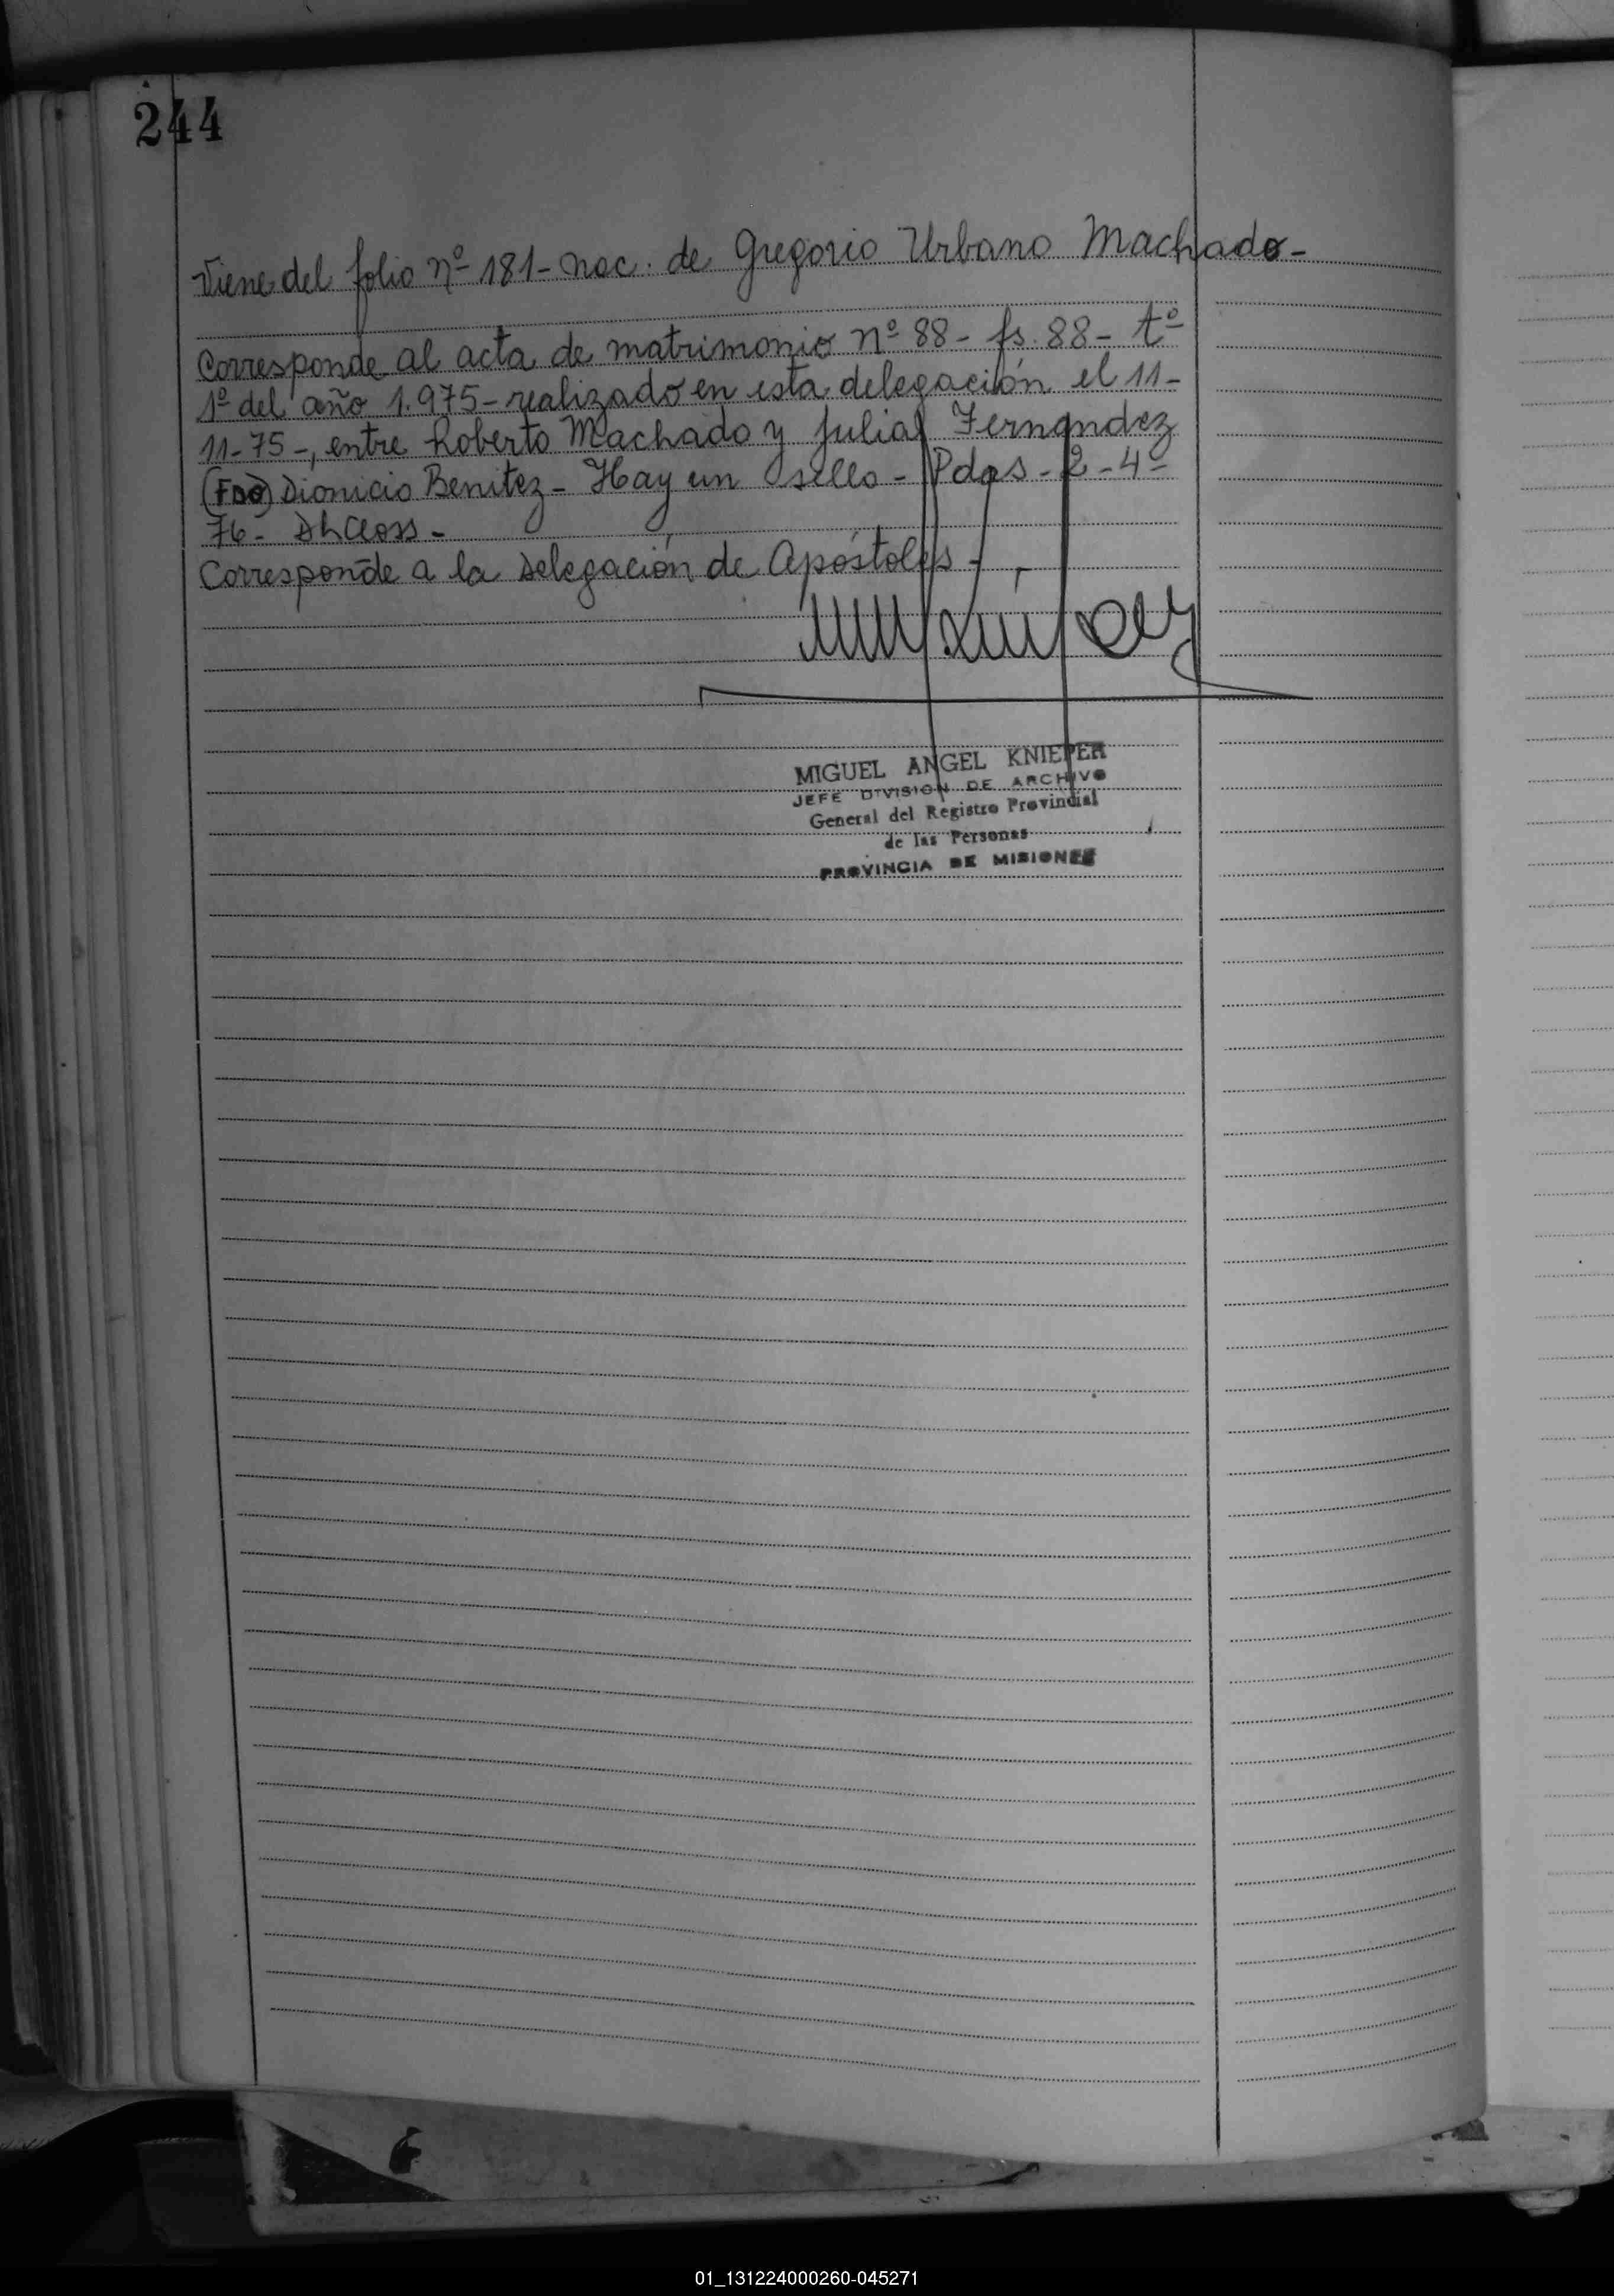 244
Viene del folio nº 181 - nac. de Gregorio Urbano Machado -
Corresponde al acta de matrimonio nº 88 - fs. 88 - tº
1º del año 1.975 - realizado en esta delegación el 11-
11-75 -, entre Roberto Machado y Julia Fernandez
(FDO) Dionicio Benitez - Hay un sello - Pdas - 2 - 4 -
76 -
Corresponde a la Delegación de Apóstoles -
MIGUEL ANGEL KNIEPER
JEFE DIVISION DE ARCHIVO
General del Registro Provincial
de las Personas
PROVINCIA DE MISIONES
01_131224000260-045271